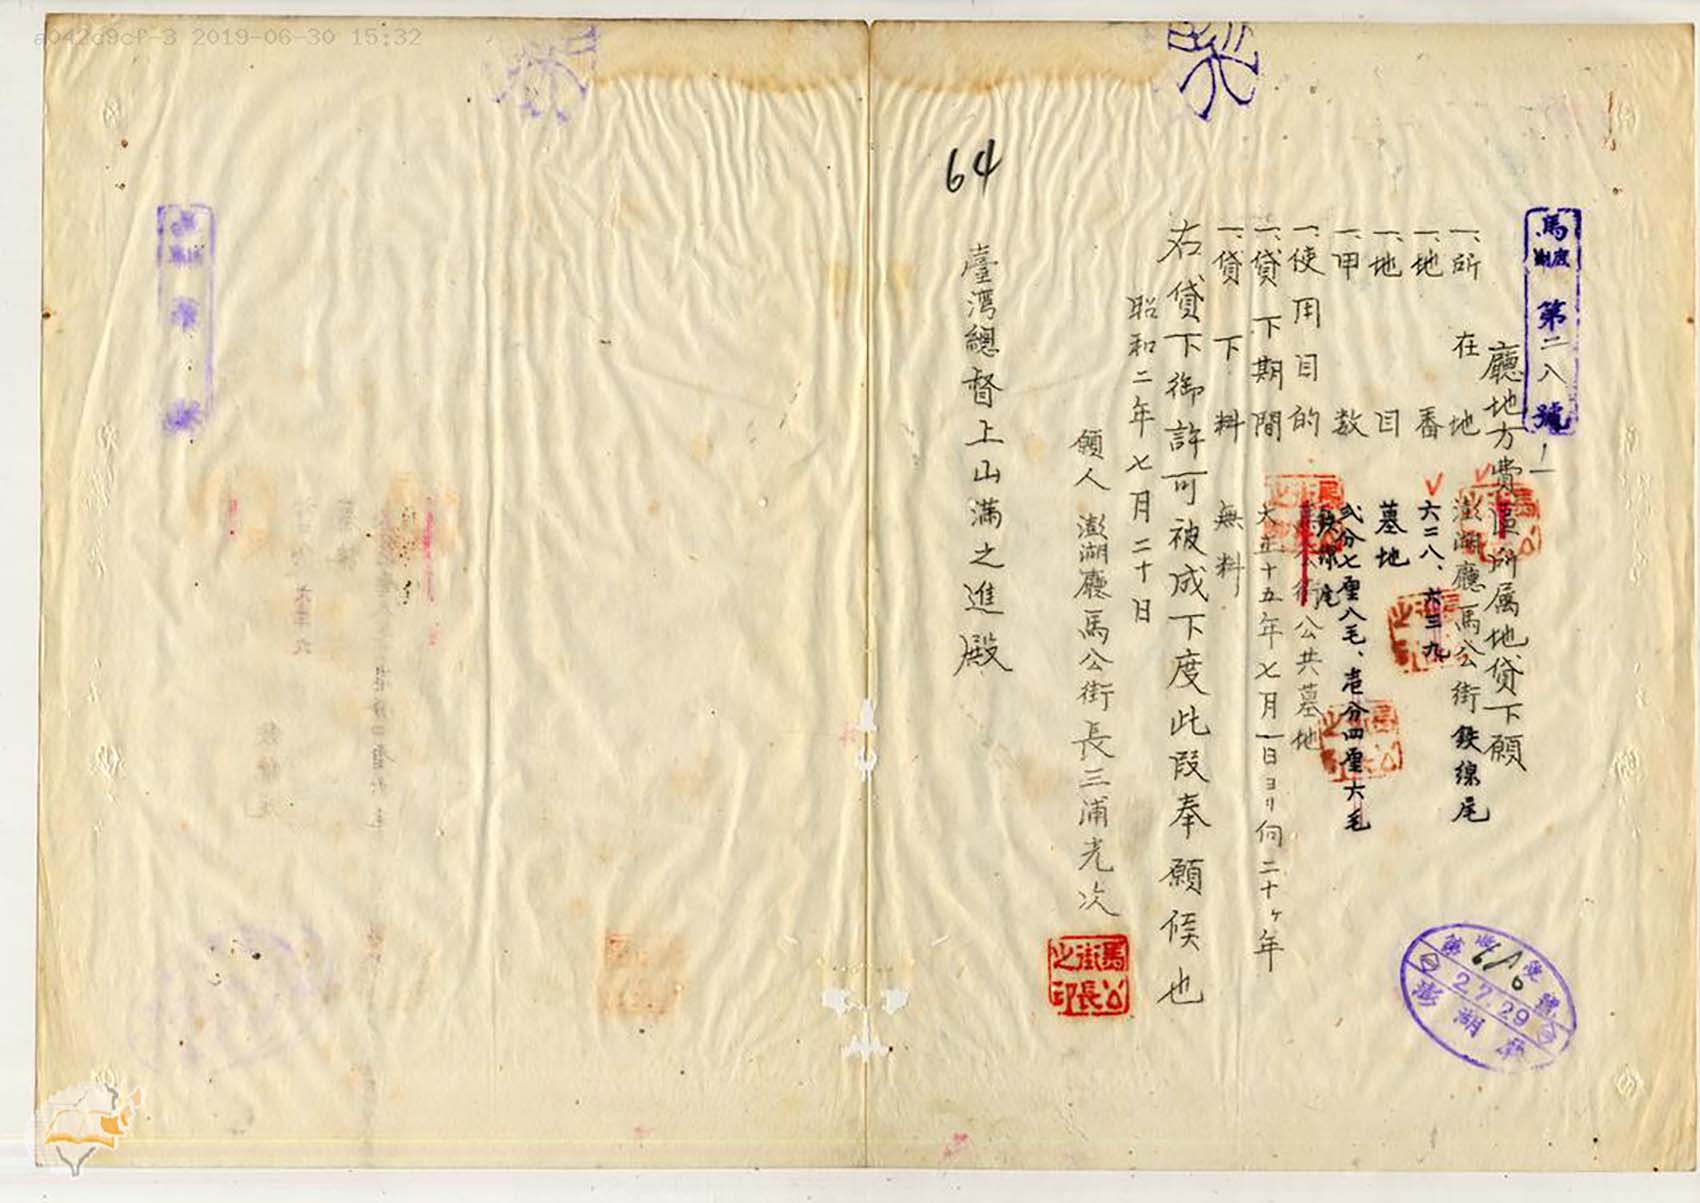 a042a9cf-3 2019-06-30 15:32
64
馬 第二八號ノ一
廳地方費區所属地貸下願
一、所在地 澎湖廳馬公街鉄線尾
一、地番 六三八、六三九
一、地目 墓地
一、甲数 弐分七厘八毛、壱分四厘六毛
一、使用目的 鉄線尾公共墓地
一、貸下期間 大正十五年七月一日ヨリ向二十ヶ年
一、貸下料 無料
右貸下御許可被成下度此段奉願候也
昭和二年七月二十日
願人 澎湖廳馬公街長三浦光次
馬公街長之印
臺湾總督上山満之進殿
2.7.29
澎湖廳